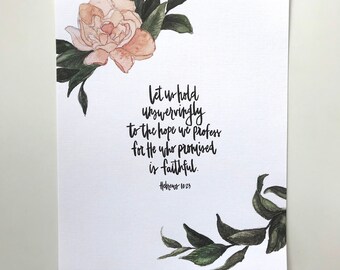 let us hold
unswervingly
to the hope we profess
for He who promised
is faithful.
Hebrews 10:23